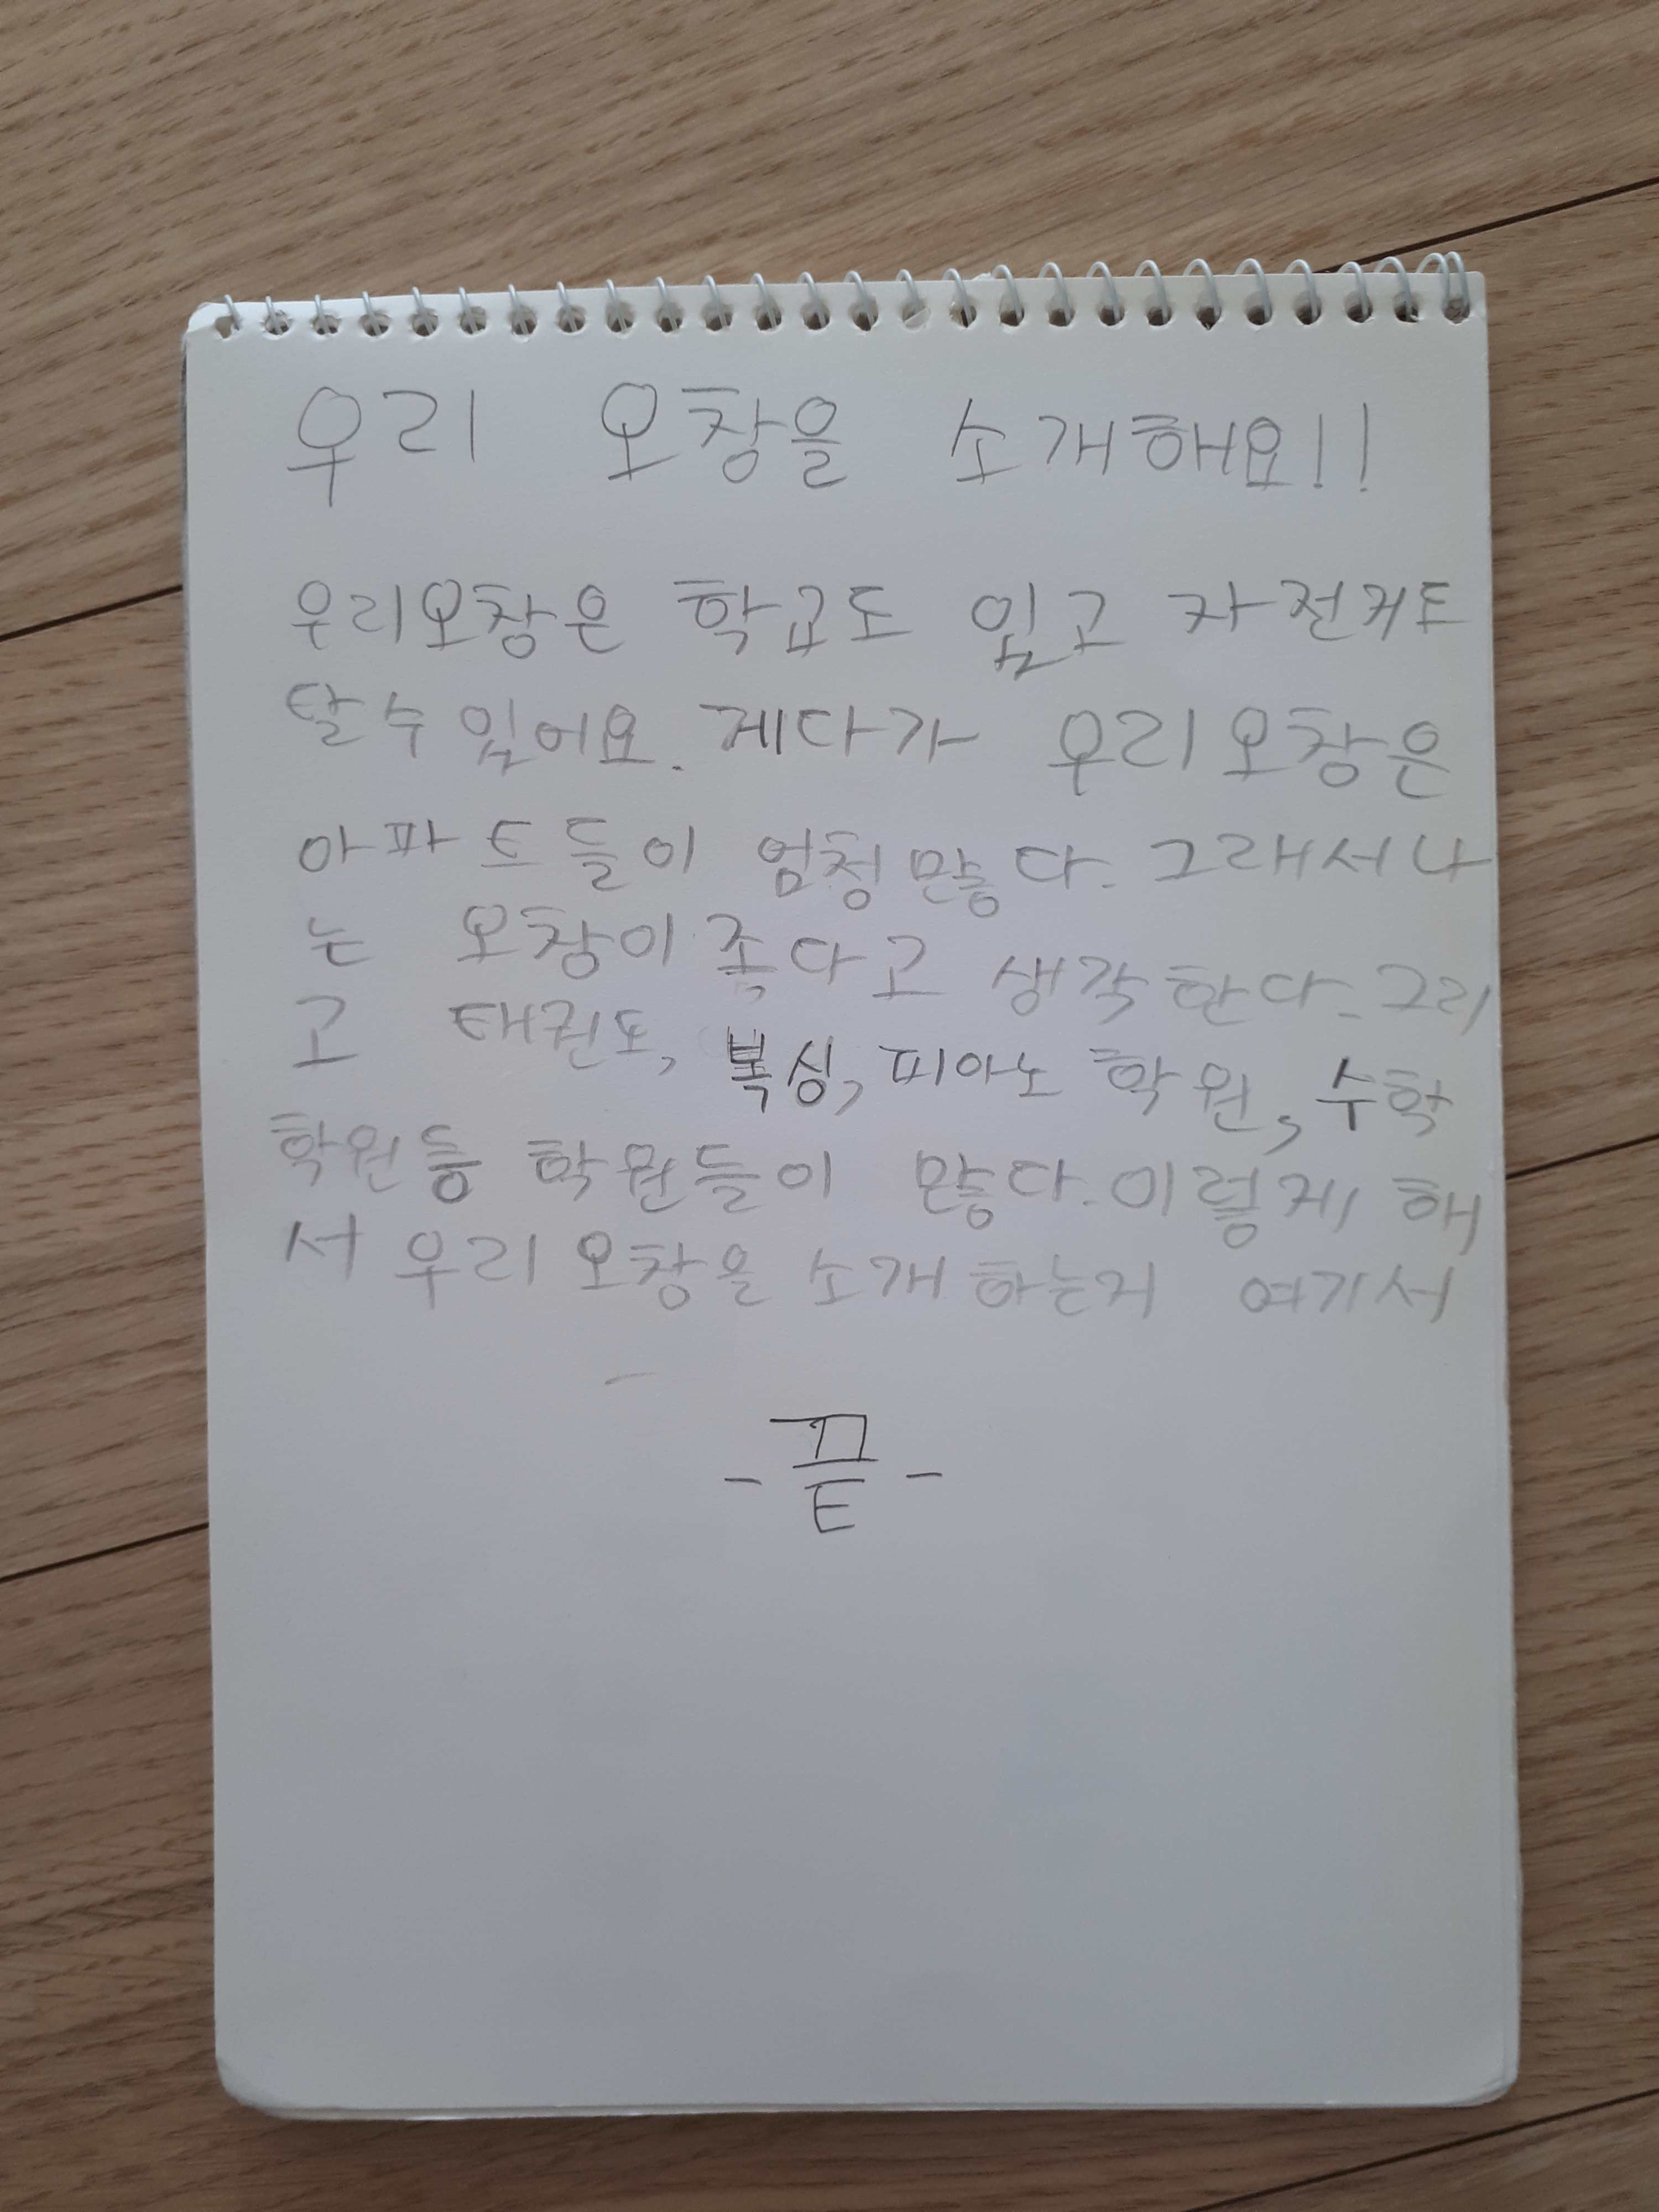 우리 오창을 소개해요!!
우리오창은 학교도 있고 자전거도
탈수 있어요. 게다가 우리 오창은
아파트들이 엄청 많다. 그래서 나
는 오창이 좋다고 생각한다. 그리
고 태권도, 복싱, 피아노 학원, 수학
학원등 학원들이 많다. 이렇게 해
서 우리 오창을 소개하는거 여기서
- 끝 -